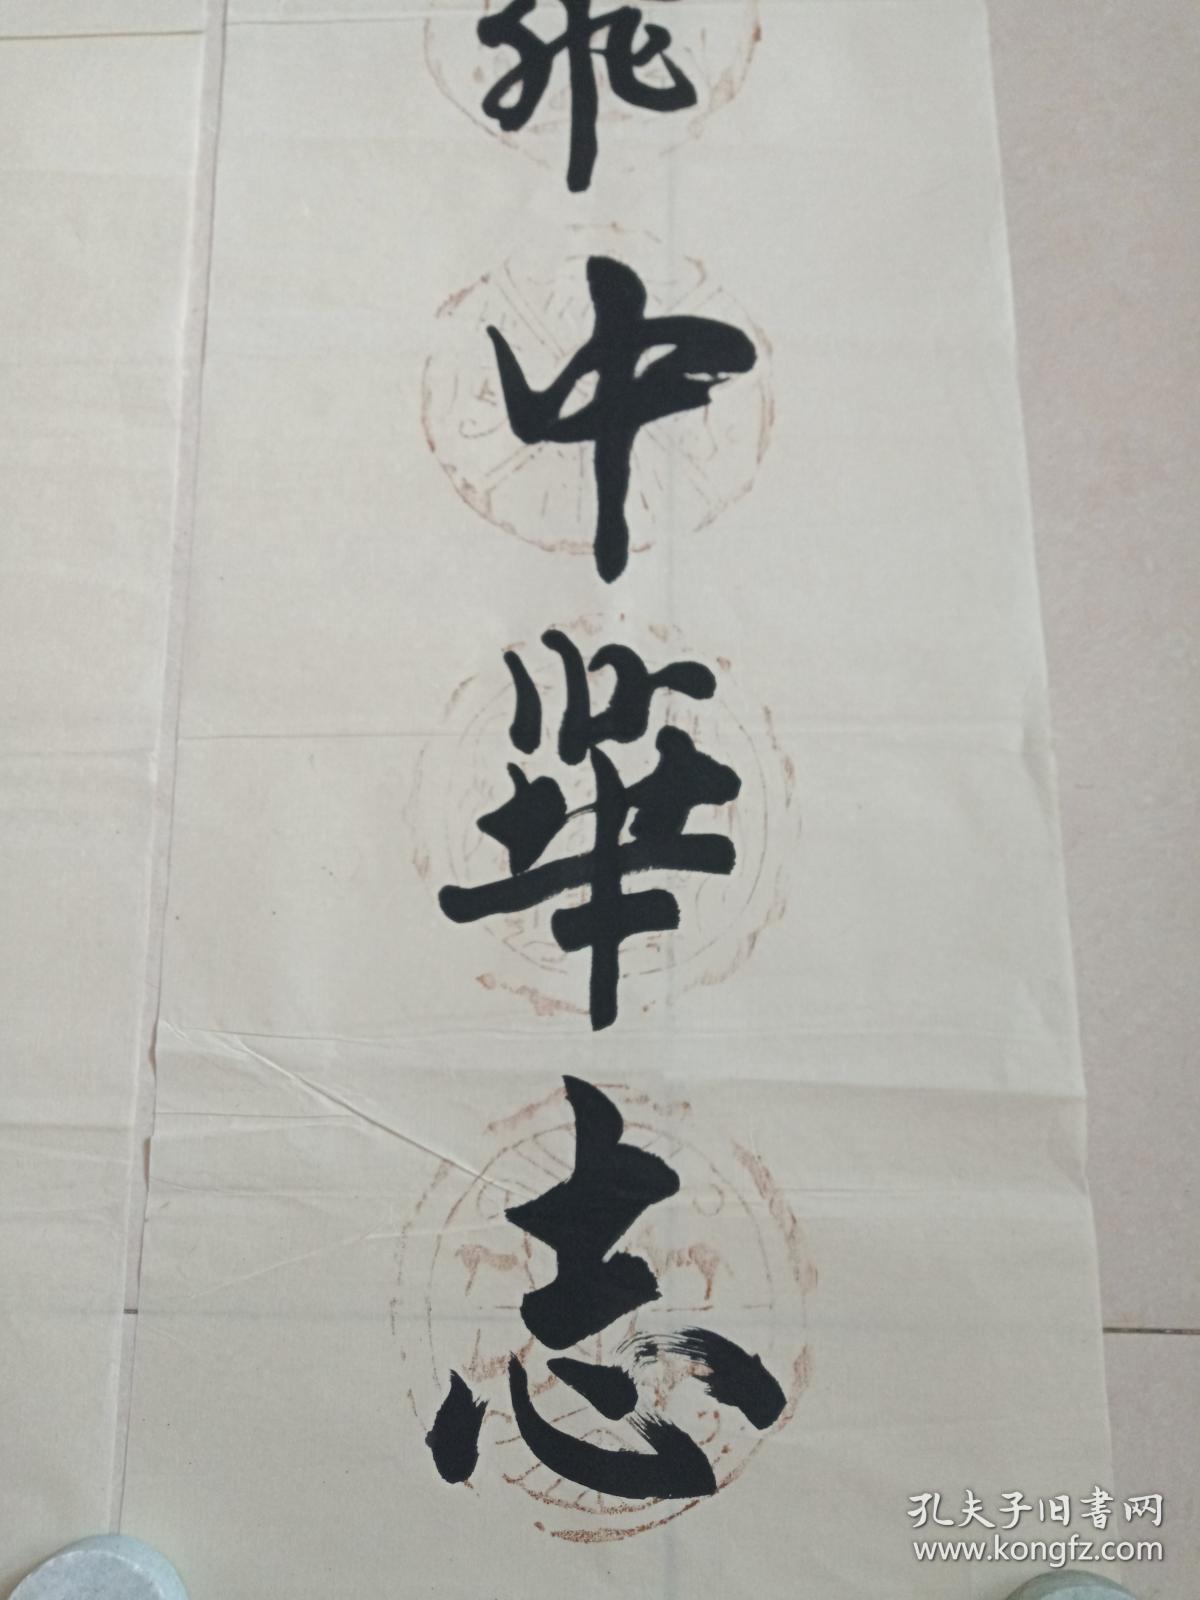 飛
中
華
志
孔夫子旧書网
www.kongfz.com